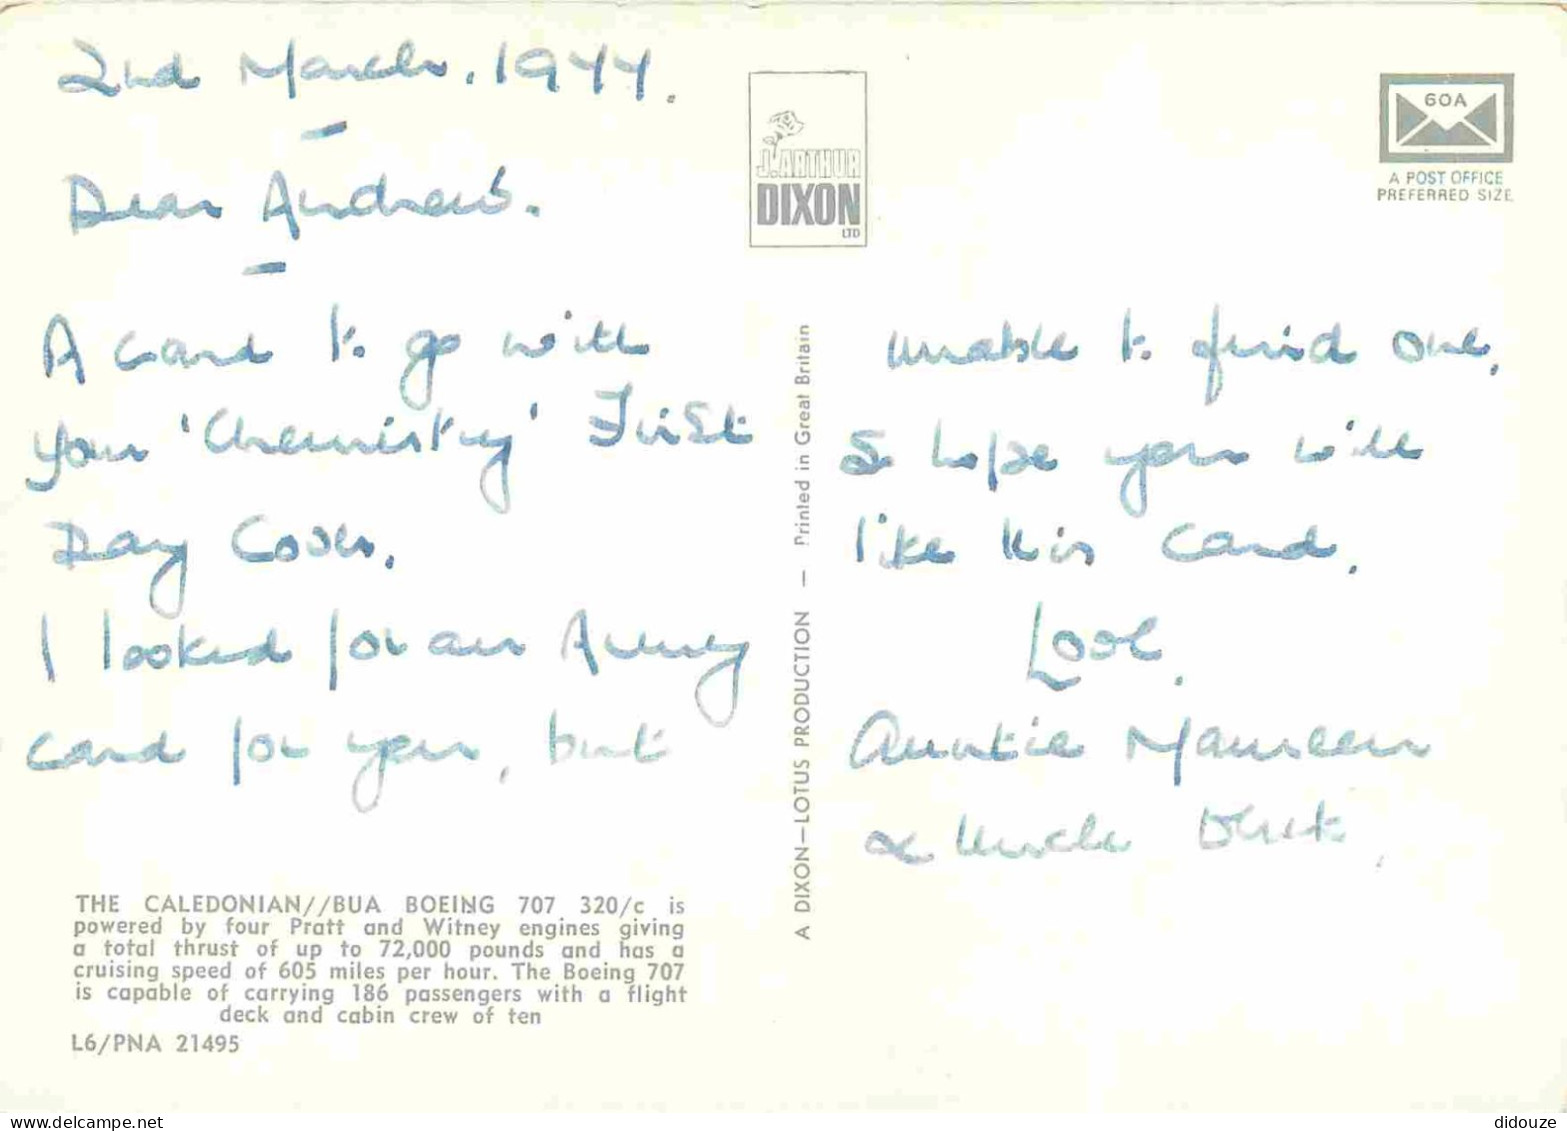 2nd March. 1977.
Dear Andrew.
A card to go with
your 'Chemistry' First
Day Cover.
I looked for an Army
card for you, but
unable to find one,
So hope you will
like this card.
Love,
Auntie Maureen
& Uncle Derek,
J. ARTHUR
DIXON
LTD
60A
A POST OFFICE
PREFERRED SIZE
A DIXON–LOTUS PRODUCTION – Printed in Great Britain
THE CALEDONIAN//BUA BOEING 707 320/c is
powered by four Pratt and Witney engines giving
a total thrust of up to 72,000 pounds and has a
cruising speed of 605 miles per hour. The Boeing 707
is capable of carrying 186 passengers with a flight
deck and cabin crew of ten
L6/PNA 21495
www.delcampe.net
didouze